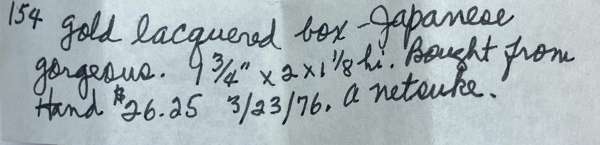 154 gold lacquered box - Japanese
gorgeous. 1 3/4" x 2 x 1 1/8 hi. Bought from
Hand $26.25 3/23/76. a netsuke.